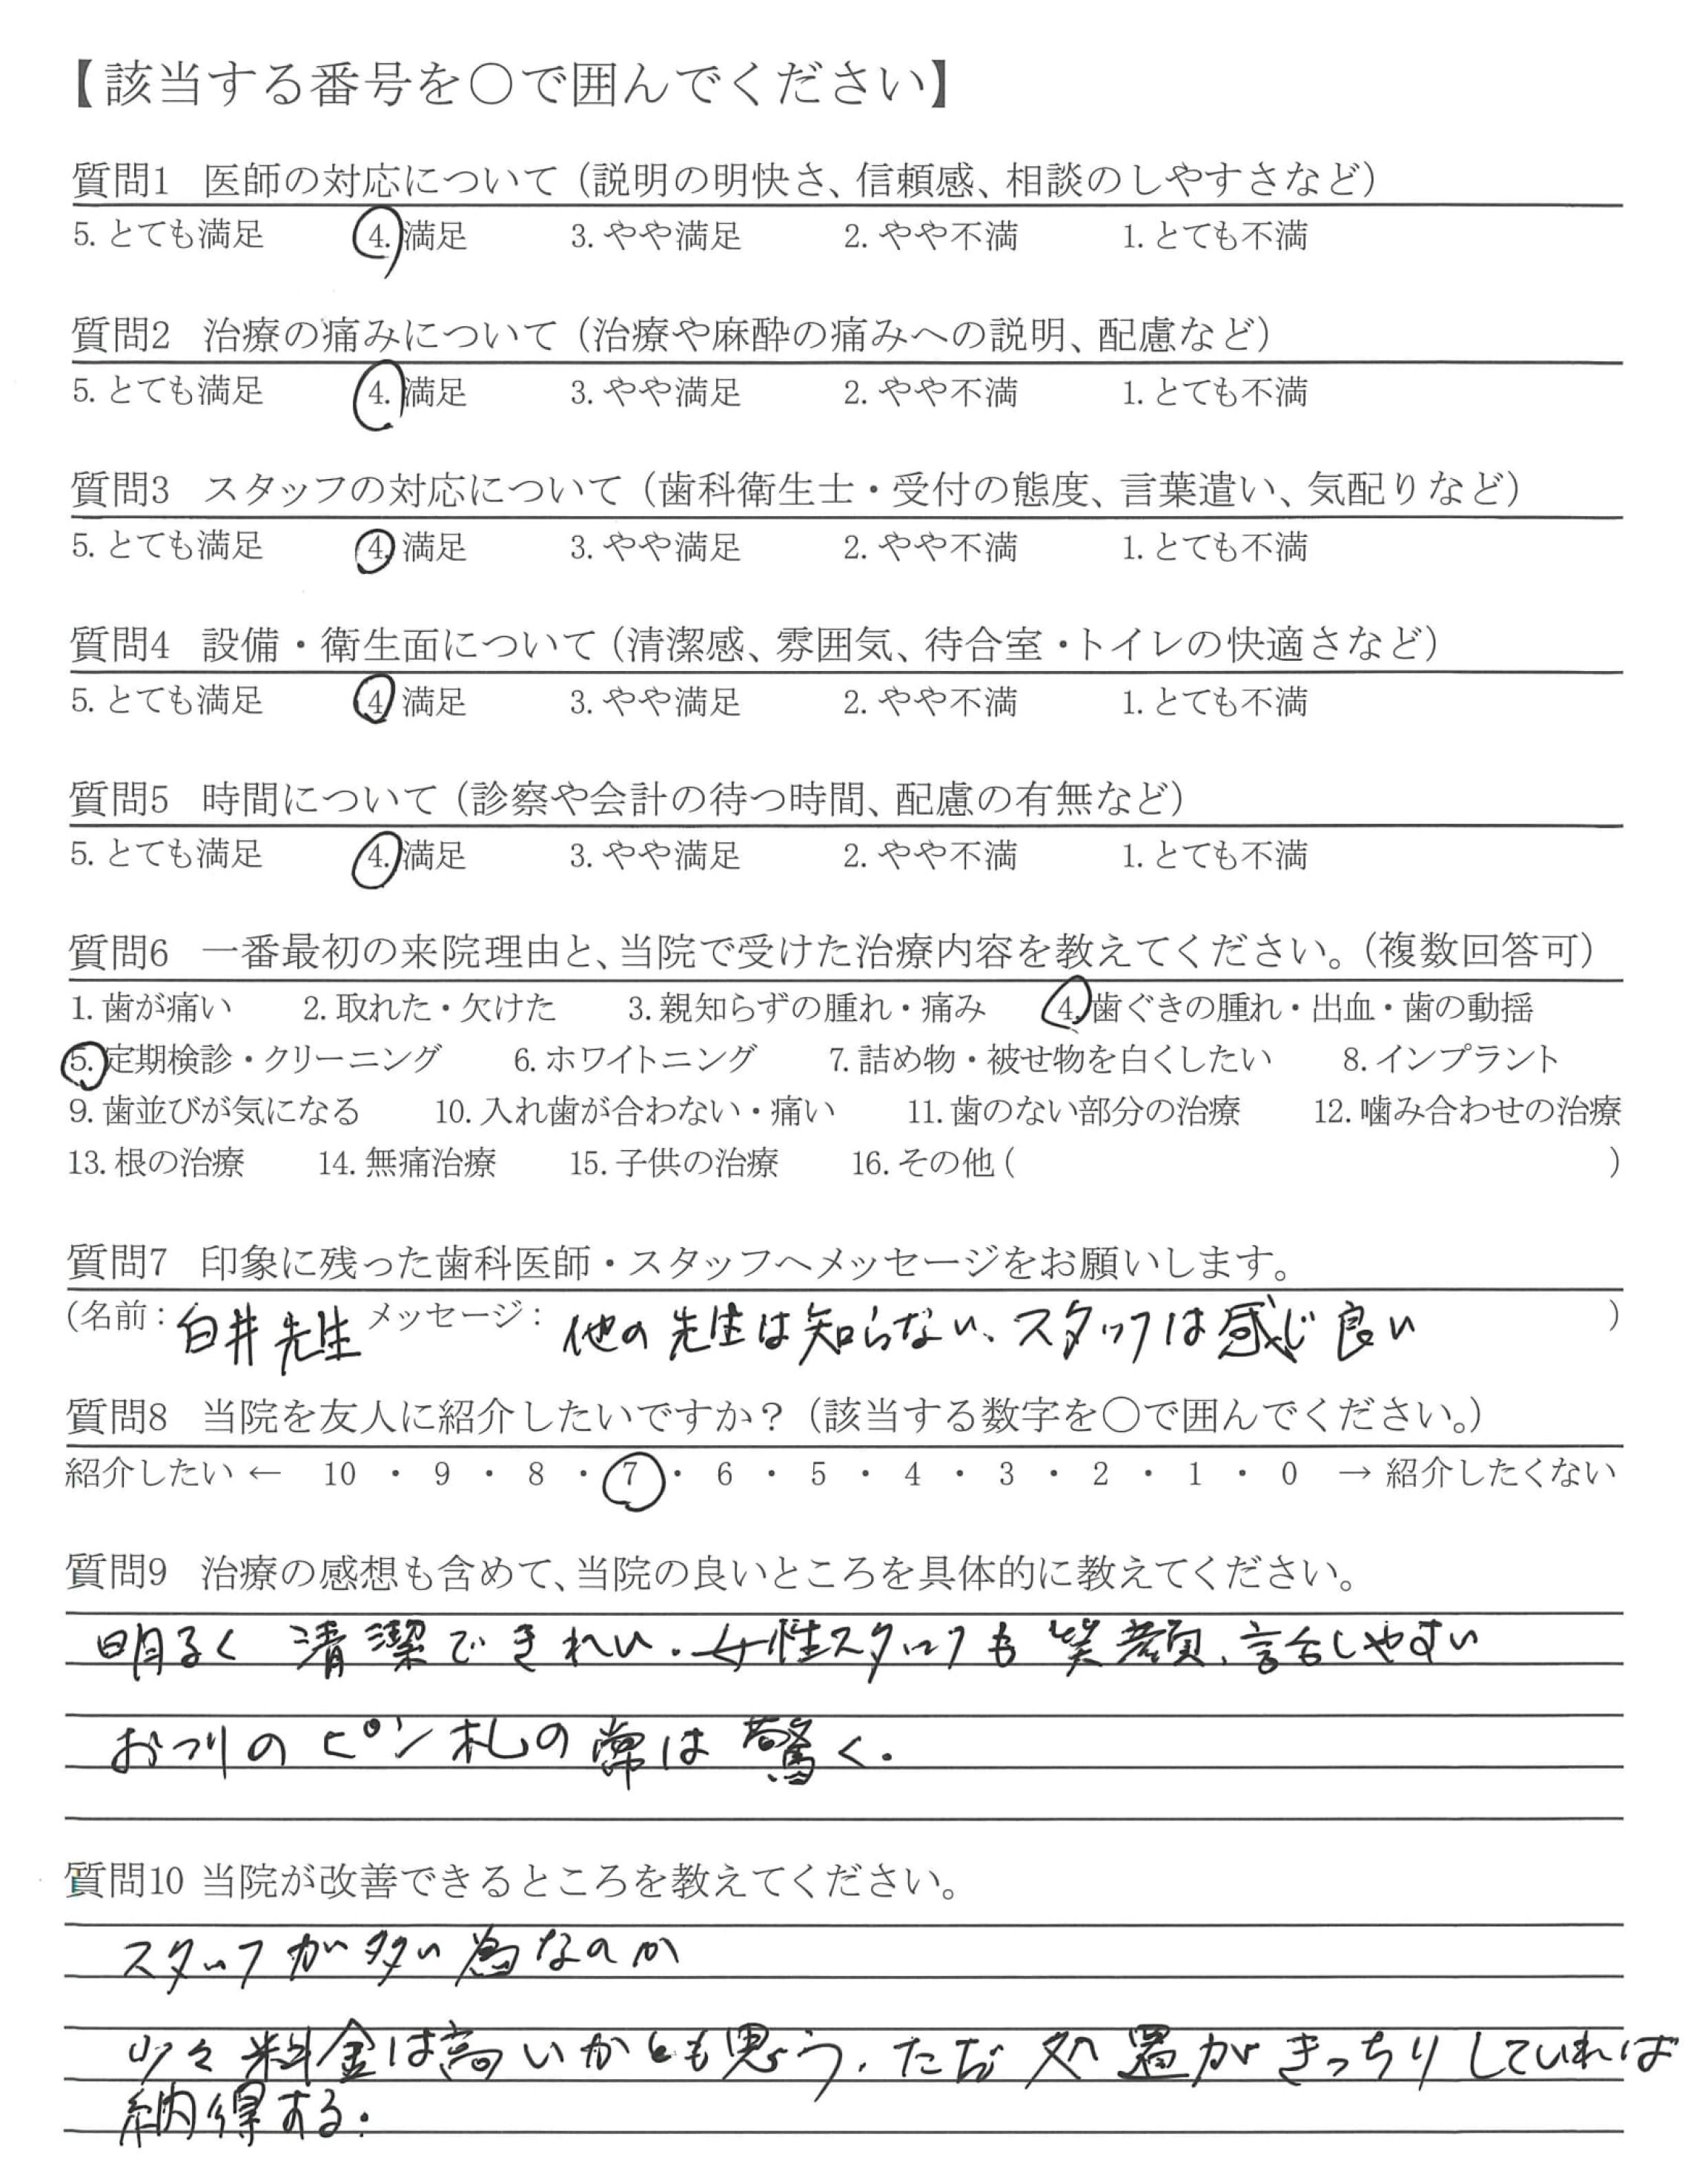 【該当する番号を○で囲んでください】
質問1 医師の対応について（説明の明快さ、信頼感、相談のしやすさなど）
5. とても満足 4. 満足 3. やや満足 2. やや不満 1. とても不満
質問2 治療の痛みについて（治療や麻酔の痛みへの説明、配慮など）
5. とても満足 4. 満足 3. やや満足 2. やや不満 1. とても不満
質問3 スタッフの対応について（歯科衛生士・受付の態度、言葉遣い、気配りなど）
5. とても満足 4. 満足 3. やや満足 2. やや不満 1. とても不満
質問4 設備・衛生面について（清潔感、雰囲気、待合室・トイレの快適さなど）
5. とても満足 4. 満足 3. やや満足 2. やや不満 1. とても不満
質問5 時間について（診察や会計の待つ時間、配慮の有無など）
5. とても満足 4. 満足 3. やや満足 2. やや不満 1. とても不満
質問6 一番最初の来院理由と、当院で受けた治療内容を教えてください。（複数回答可）
1. 歯が痛い 2. 取れた・欠けた 3. 親知らずの腫れ・痛み 4. 歯ぐきの腫れ・出血・歯の動揺
5. 定期検診・クリーニング 6. ホワイトニング 7. 詰め物・被せ物を白くしたい 8. インプラント
9. 歯並びが気になる 10. 入れ歯が合わない・痛い 11. 歯のない部分の治療 12. 噛み合わせの治療
13. 根の治療 14. 無痛治療 15. 子供の治療 16. その他（ ）
質問7 印象に残った歯科医師・スタッフへメッセージをお願いします。
（名前：白井先生 メッセージ：他の先生は知らない、スタッフは感じ良い ）
質問8 当院を友人に紹介したいですか？（該当する数字を○で囲んでください。）
紹介したい ← 10 ・ 9 ・ 8 ・ 7 ・ 6 ・ 5 ・ 4 ・ 3 ・ 2 ・ 1 ・ 0 → 紹介したくない
質問9 治療の感想も含めて、当院の良いところを具体的に教えてください。
明るく 清潔できれい。女性スタッフも笑顔、話しやすい
おつりの ピン札の 常は 驚く。
質問10 当院が改善できるところを教えてください。
スタッフが多い為なのか
少々料金は高いかとも思う、ただ 処置がきっちりしていれば
納得する。